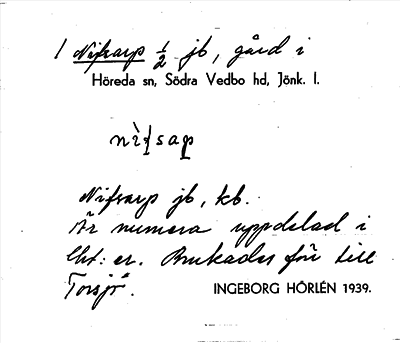 1 Nifsarp ½ jb, gård i
Höreda sn, Södra Vedbo hd, Jönk. l.
nìfsap
Nifsarp jb, kb.
Är numera uppdelad i
lht: er. Brukades för till
Torsjö.
INGEBORG HÖRLÉN 1939.